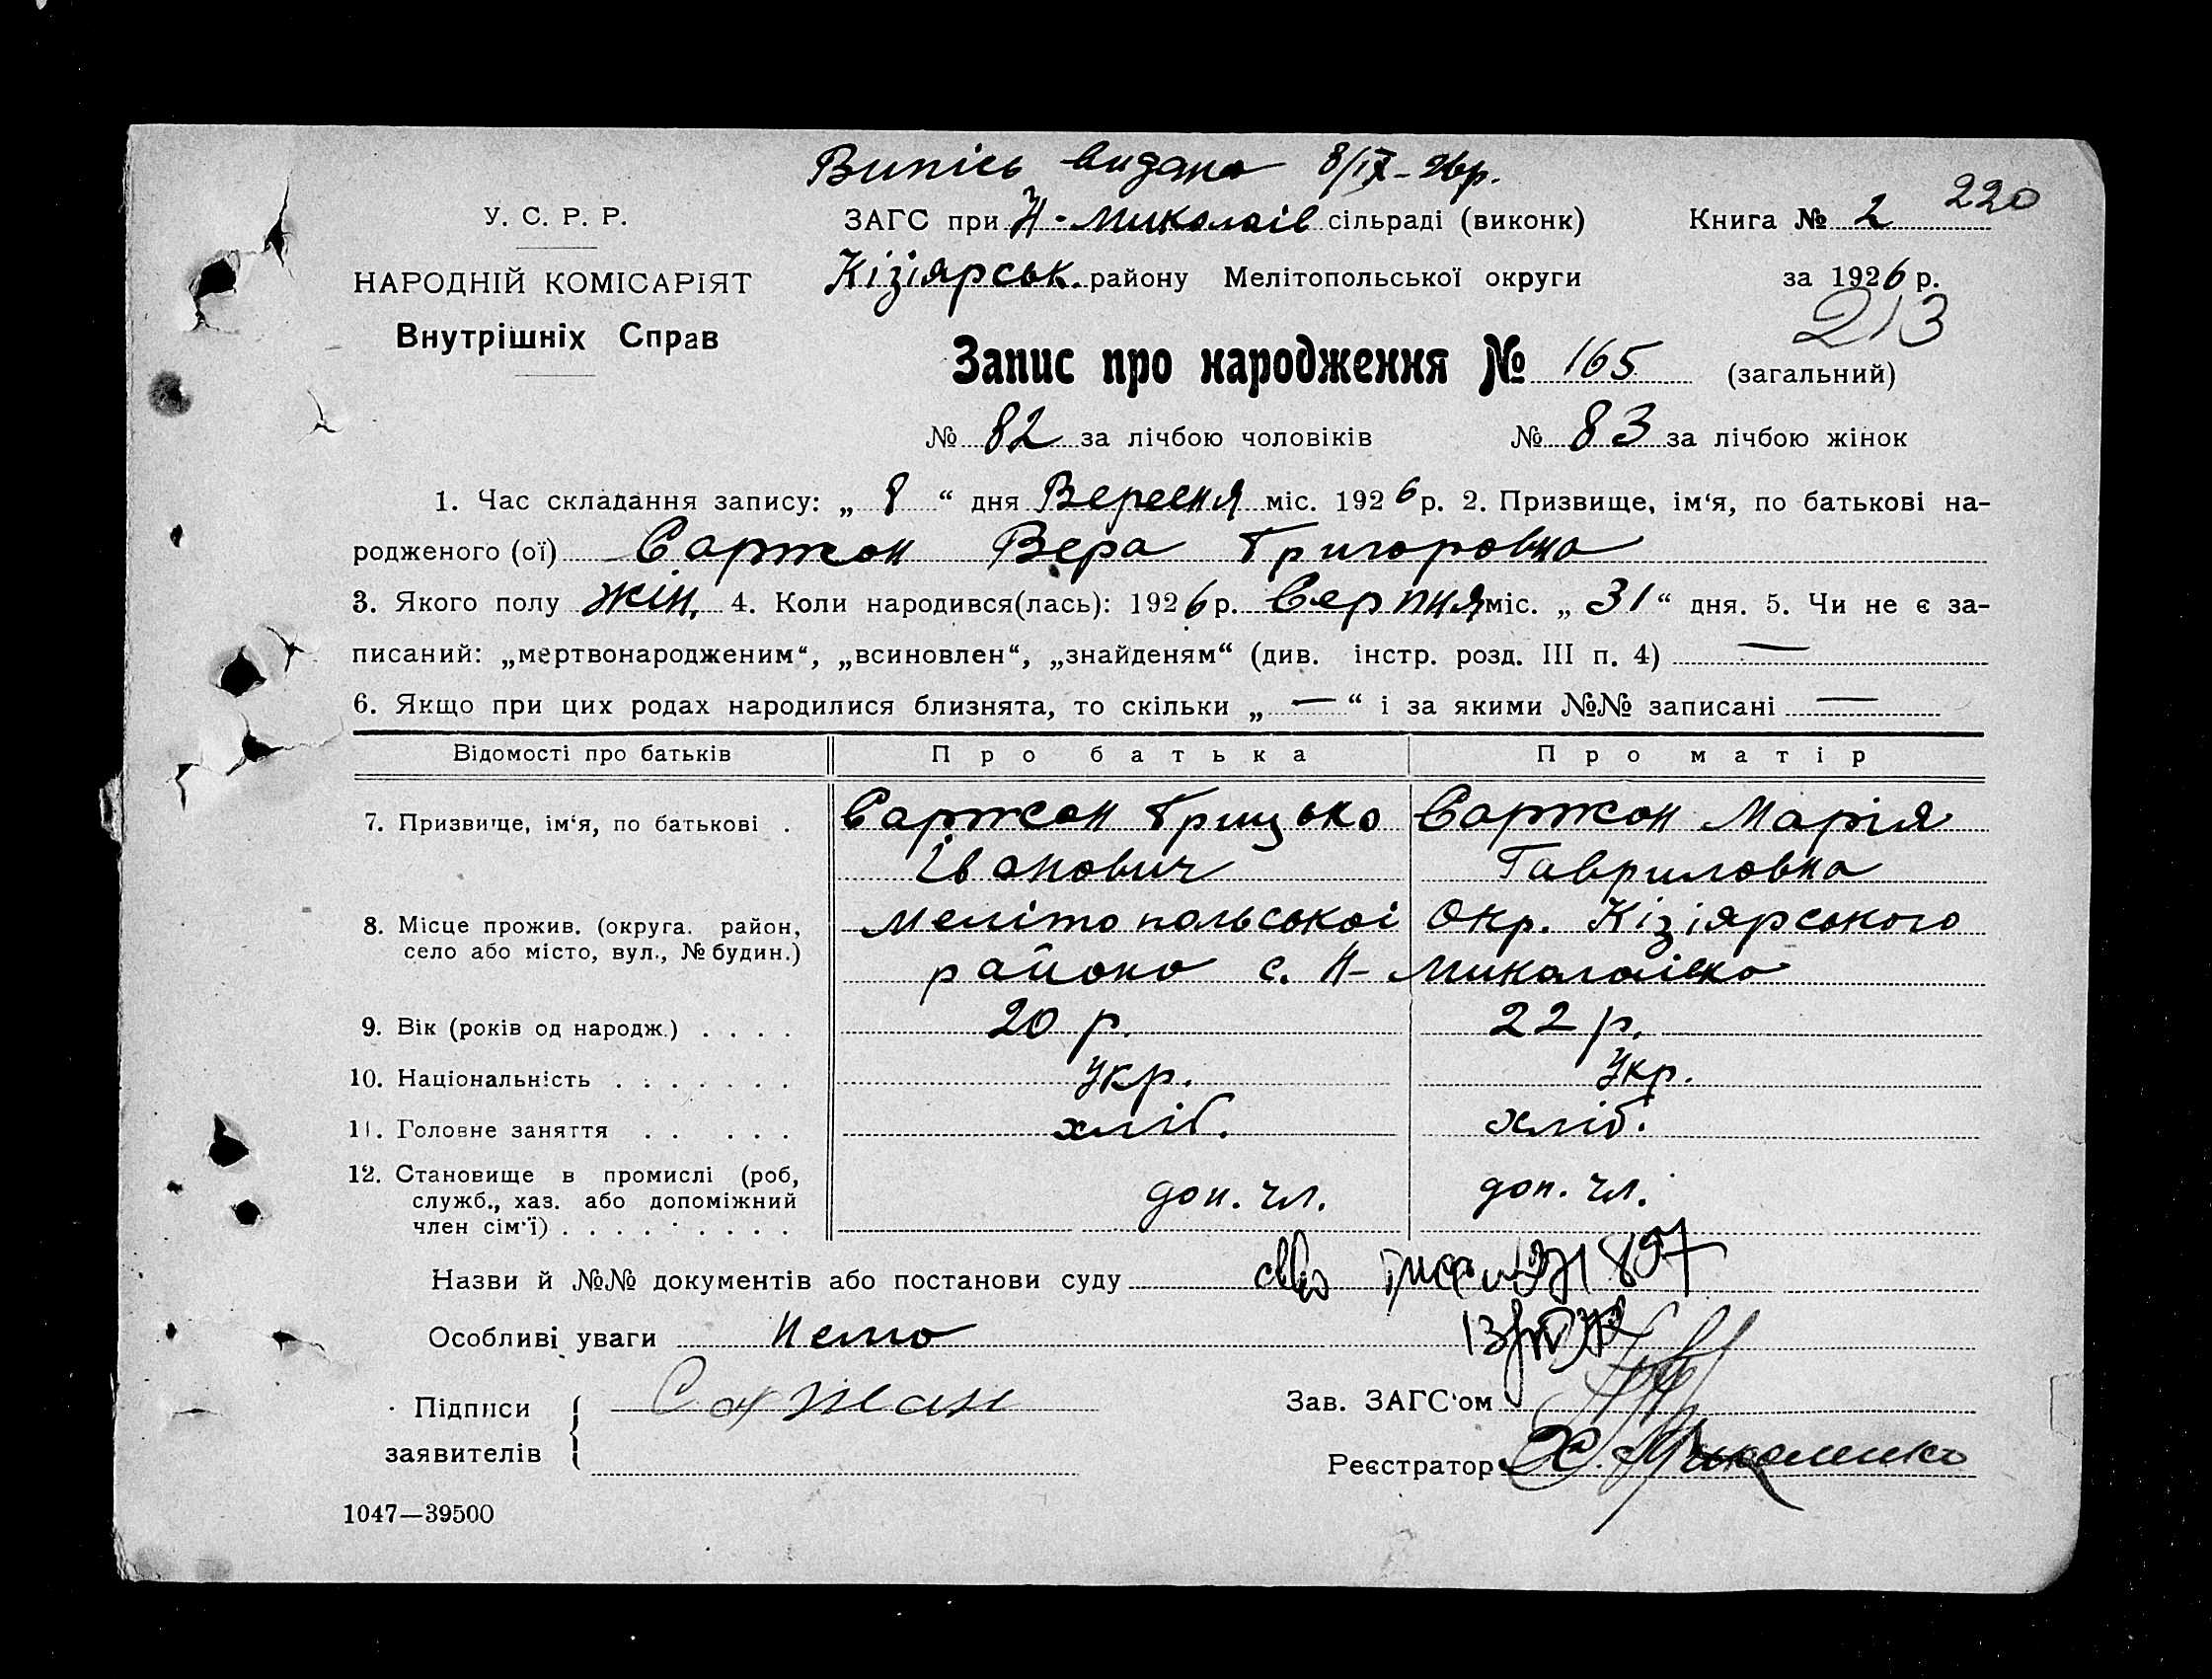 Випісь видана 8/IX-26р.
220
У. С. Р. Р.
ЗАГС при Н-Миколаів сільраді (виконк)
Книга № 2
НАРОДНІЙ КОМІСАРІЯТ
Кізіярськ. району Мелітопольської округи
за 1926 р.
Внутрішніх Справ
213
Запис про народження № 165 (загальний)
№ 82 за лічбою чоловіків № 83 за лічбою жінок
1. Час складання запису: „ 8 “ дня Вересня міс. 1926 р. 2. Призвище, ім‘я, по батькові на-
родженого (ої) Саржан Вера Григоровна
3. Якого полу жін. 4. Коли народився(лась): 1926 р. Серпня міс. „ 31 “ дня. 5. Чи не є за-
писаний: „мертвонародженим“, „всиновлен“, „знайденям“ (див. інстр. розд. III п. 4) —
6. Якщо при цих родах народилися близнята, то скільки „ — “ і за якими №№ записані —
Відомості про батьків Про батька Про матір
7. Призвище, ім‘я, по батькові . Саржан Грицько Саржан Марія
Іванович Гавриловна
8. Місце прожив. (округа. район, Мелітопольськоі Окр. Кізіярського
село або місто, вул., № будин.) району с. Н-Миколаівка
9. Вік (років од народж.) . . . . 20 р. 22 р.
10. Національність . . . . . . . Укр. Укр.
11. Головне заняття . . . . . хліб. хліб.
12. Становище в промислі (роб,
служб., хаз. або допоміжний доп. чл. доп. чл.
член сім‘ї) . . . . . . . . .
Назви й №№ документів або постанови суду
Особливі уваги нема
Підписи Саржан
заявителів
Зав. ЗАГС‘ом
Реєстратор
1047—39500